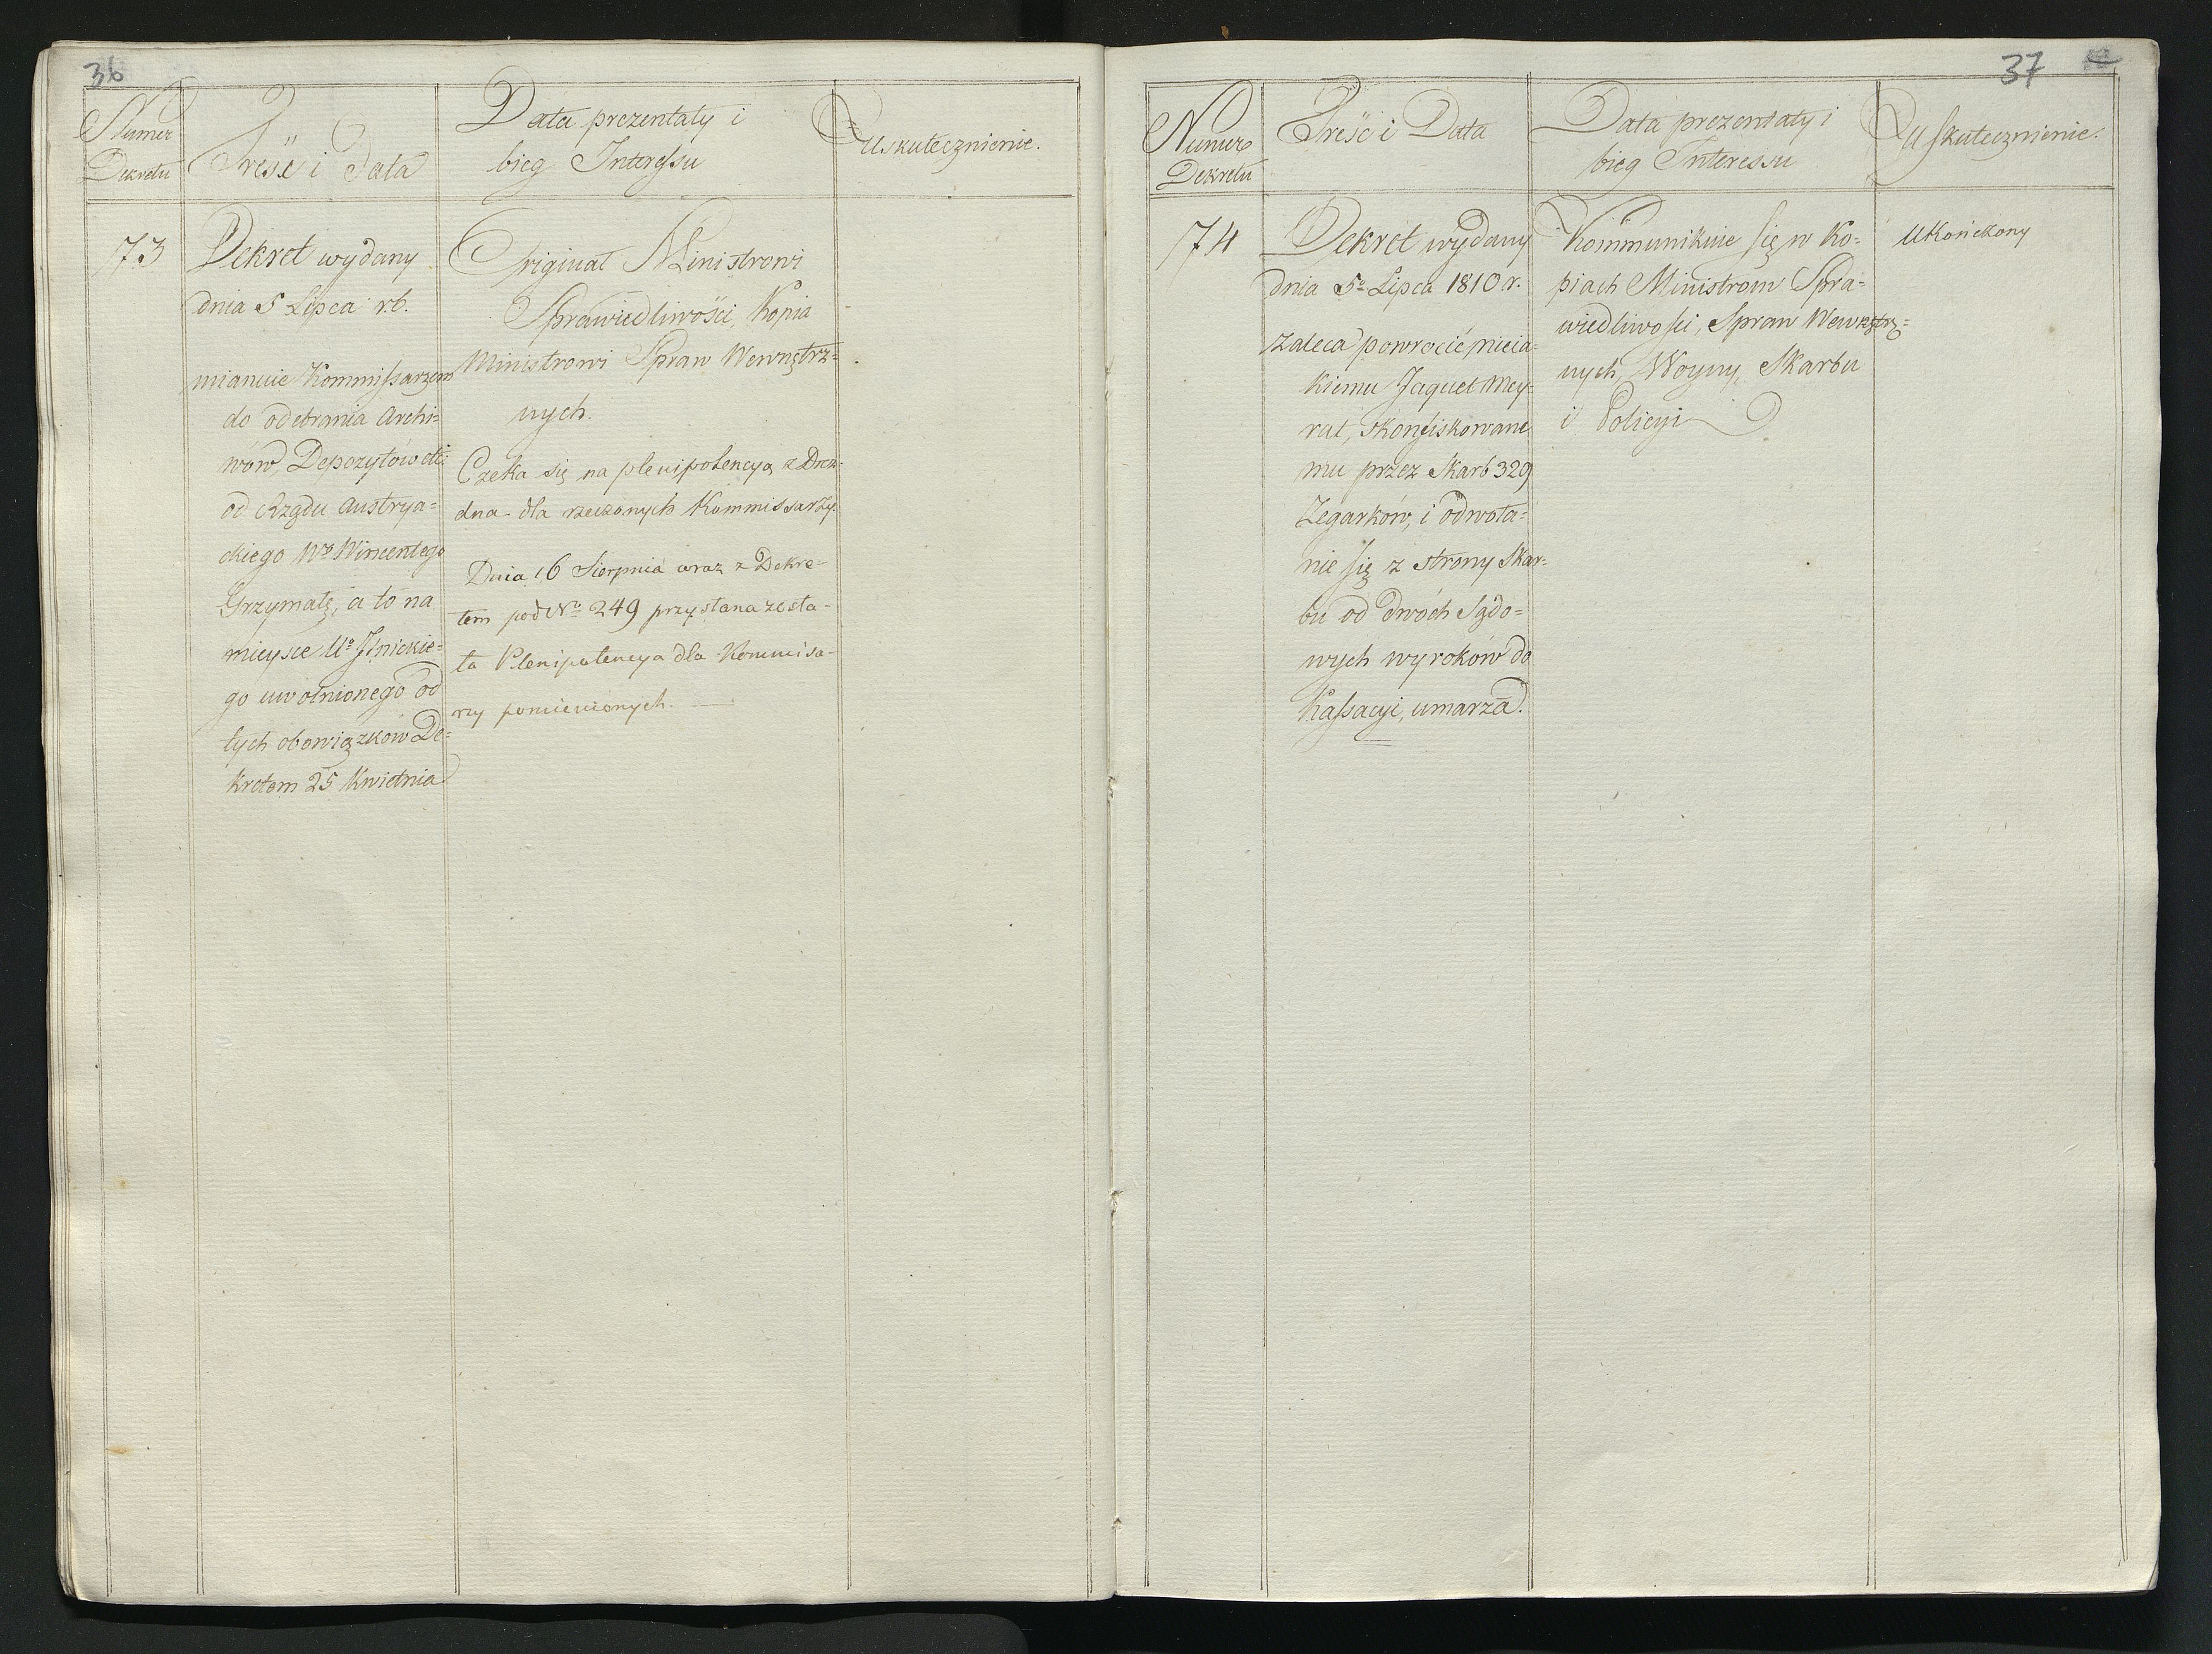 36
Numer
Dekretu
Treść i Data
Data prezentaty i
bieg Interessu
Uskutecznienie.
73
Dekret wydany
dnia 5 Lipca r.b.
mianuie Kommissarzem
do odebrania Archi=
wów, Depozytów etc:
od Rządu Austrya=
ckiego Wo Wincentego
Grzymałę, a to na
mieysce Uo
go uwolnionego od
tych obowiązków De=
kretem 25 Kwietnia
Original Ministrowi
Sprawiedliwości, Kopia
Ministrowi Spraw Wewnętrz=
nych.
Czeka się na plenipotencyą z Drez=
dna dla rzeczonych Kommissarzy.
Dnia 16 Sierpnia wraz z Dekre-
tem pod No 249 przysłana zosta-
ła Plenipotencya dla Kommisa-
rzy pomienionych. —
37
Numer
Dekretu
Treść i Data
Data prezentaty i
bieg Interessu
Uskutecznienie.
74
Dekret wydany
dnia 5o Lipca 1810 r.
zaleca powrócić nieia=
kiemu Jaquet Mey=
rat, skonfiskowane
mu przez Skarb 329
Zegarków, i odwoła=
nie się z strony Skar=
bu od dwóch Sądo=
wych wyroków do
Kassacyi, umarza.
Kommunikuie się w Ko=
piach Ministrom Spra=
wiedliwości, Spraw Wewnętrz=
nych, Woyny, Skarbu
i Policyi
Ukończony